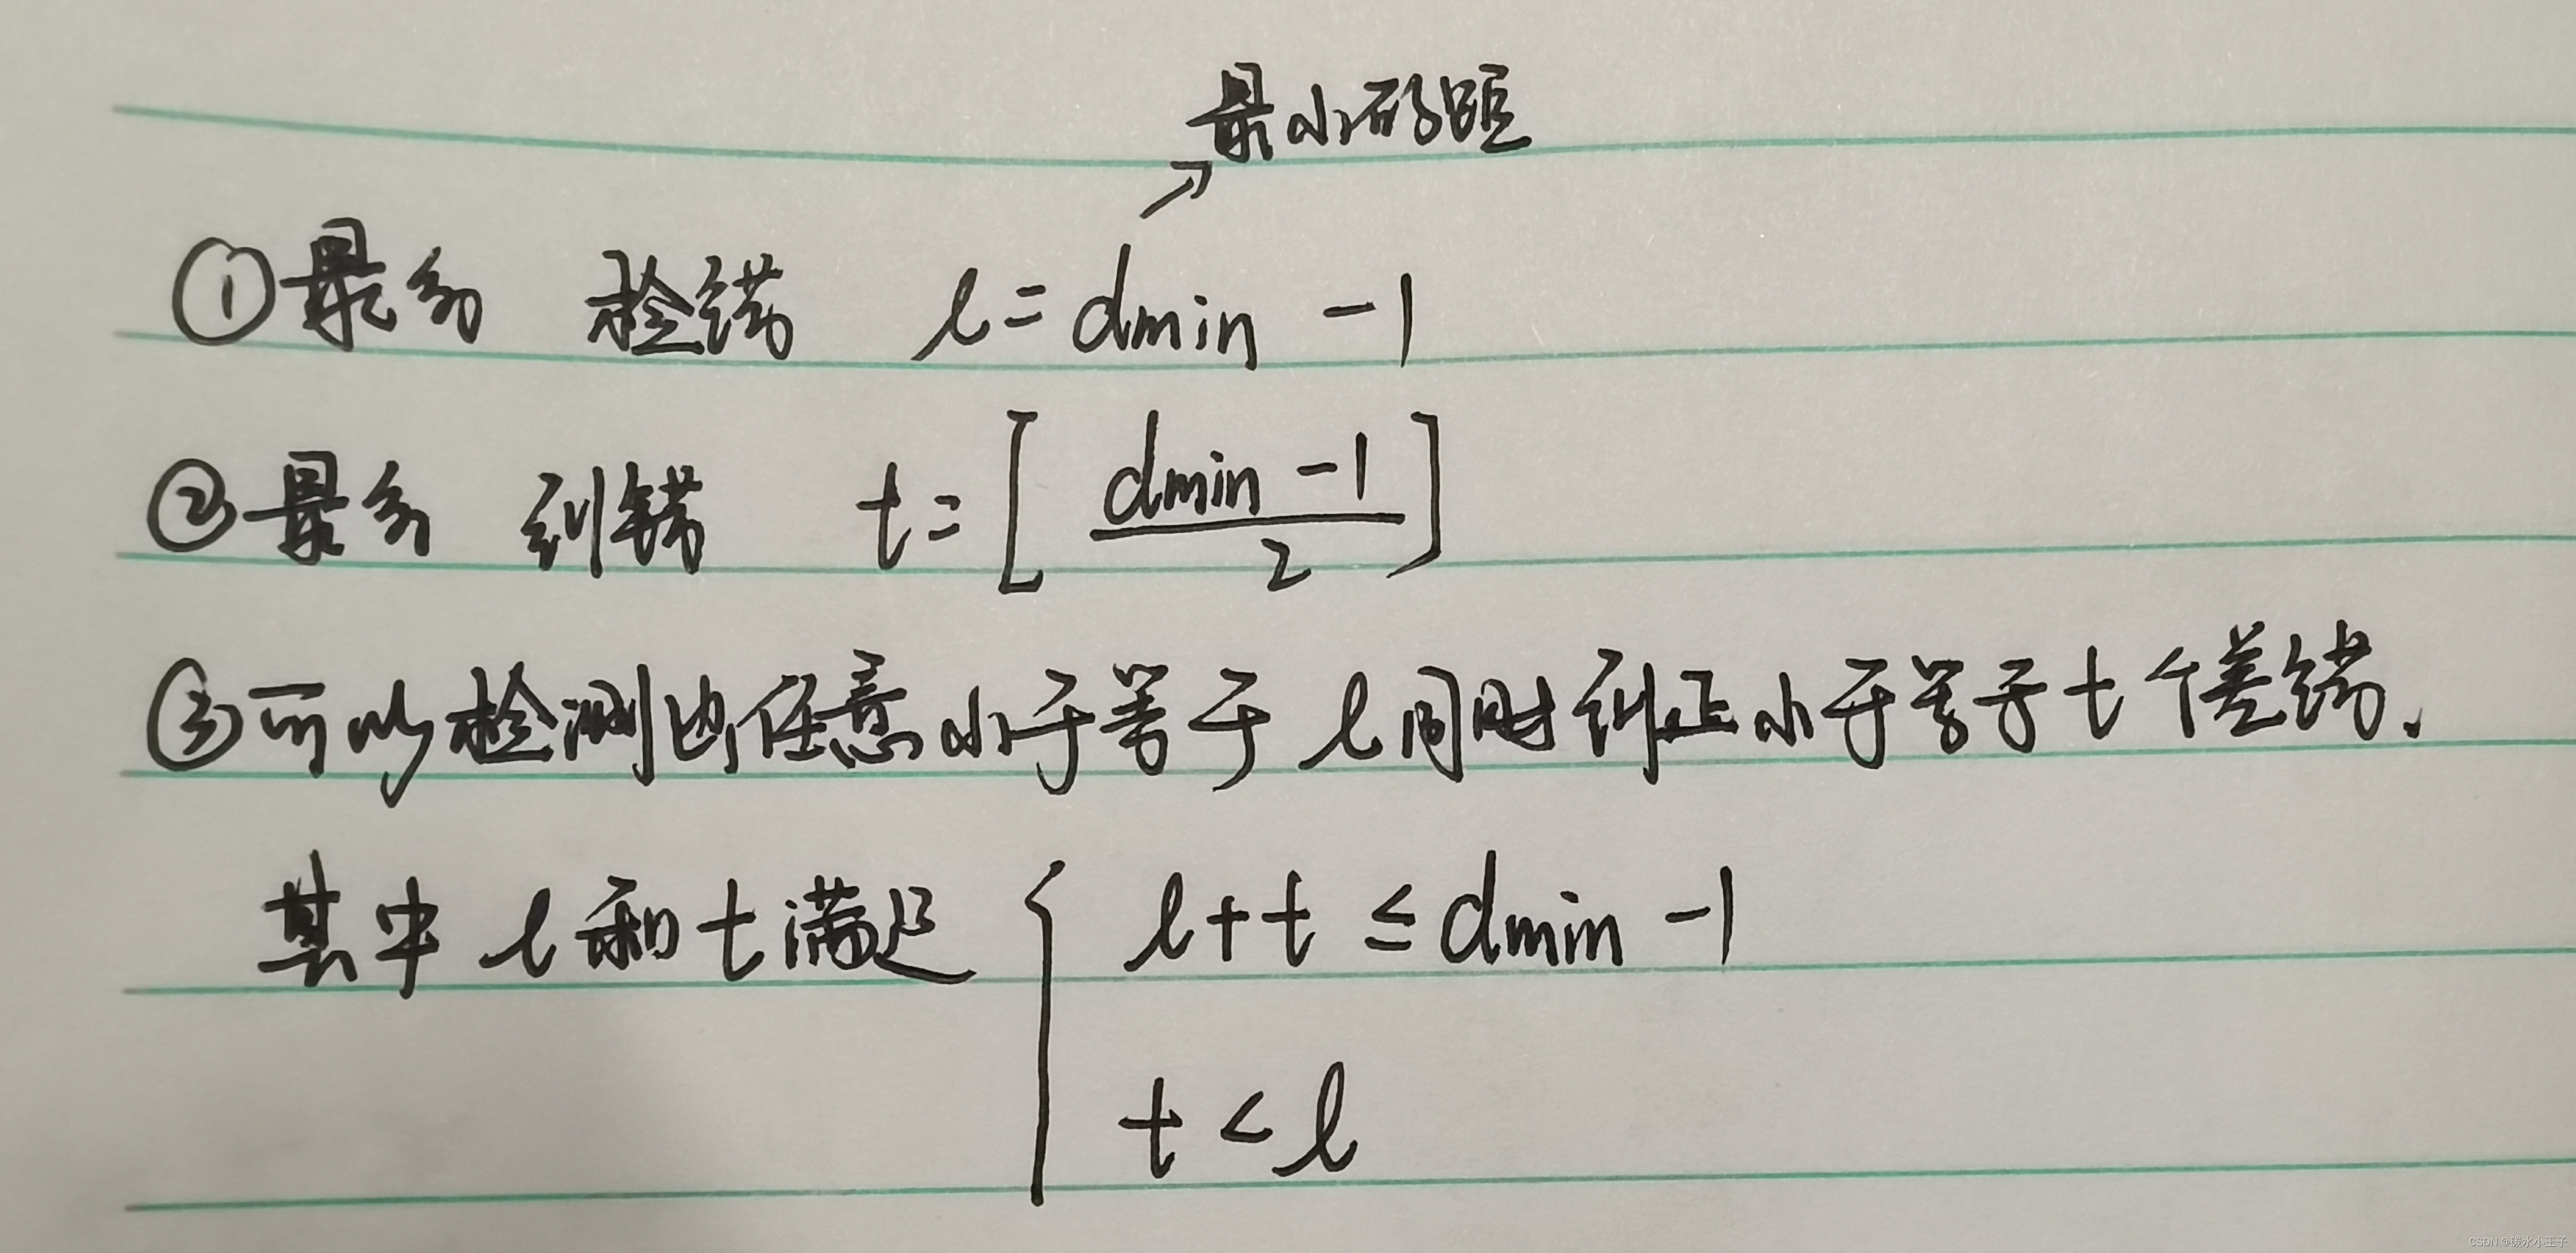 最小码距
①最多 检错 l = dmin -1
②最多 纠错 t = [ (dmin -1) / 2 ]
③可以检测出任意小于等于 l 同时纠正小于等于 t 个差错.
其中 l 和 t 满足 { l+t ≤ dmin -1
t < l
CSDN @碳水小王子